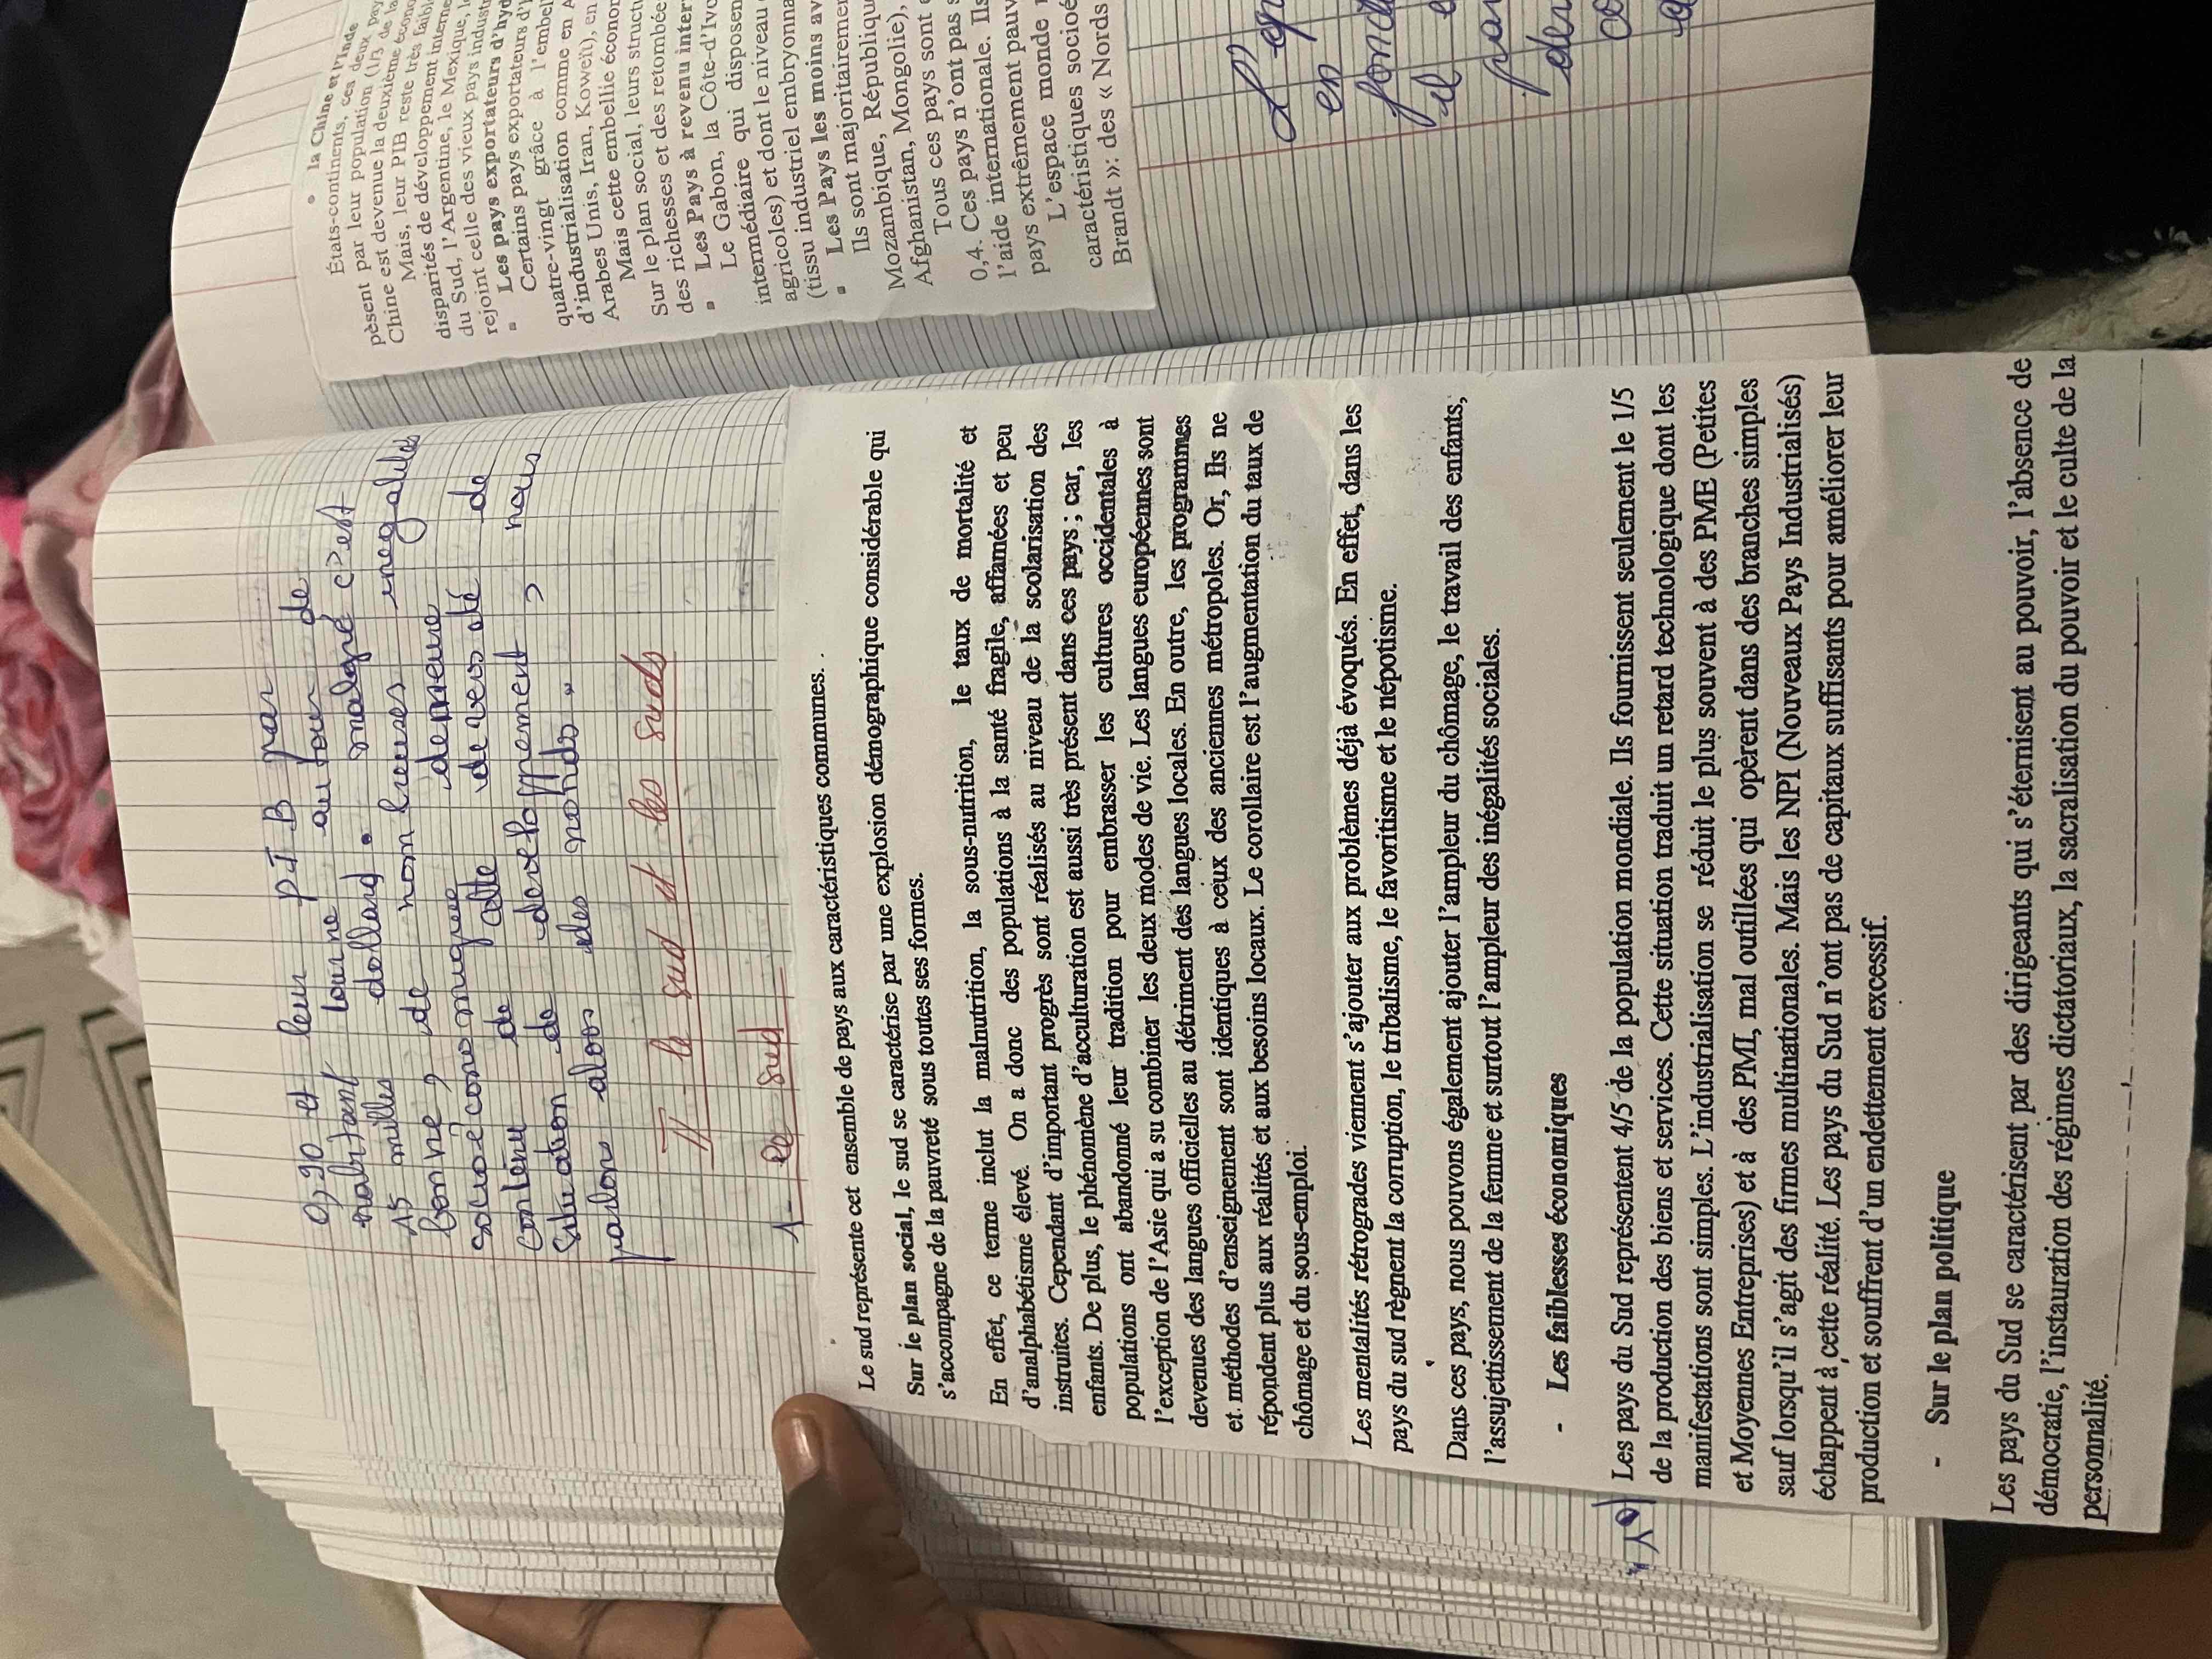 0,90 et leur PIB par
habitant tourne autour de
15 milles dollard. malgré c'est
bonne, de nombreuses inegalites
socioéconomique demeure
contenu de cette diversité de
situation de developpement, nous
parlons alors des nords.
II - le sud et les suds
1- Le sud
Le sud représente cet ensemble de pays aux caractéristiques communes.
Sur le plan social, le sud se caractérise par une explosion démographique considérable qui
s'accompagne de la pauvreté sous toutes ses formes.
En effet, ce terme inclut la malnutrition, la sous-nutrition, le taux de mortalité et
d'analphabétisme élevé. On a donc des populations à la santé fragile, affamées et peu
instruites. Cependant d'important progrès sont réalisés au niveau de la scolarisation des
enfants. De plus, le phénomène d'acculturation est aussi très présent dans ces pays ; car, les
populations ont abandonné leur tradition pour embrasser les cultures occidentales à
l'exception de l'Asie qui a su combiner les deux modes de vie. Les langues européennes sont
devenues des langues officielles au détriment des langues locales. En outre, les programmes
et méthodes d'enseignement sont identiques à ceux des anciennes métropoles. Or, Ils ne
répondent plus aux réalités et aux besoins locaux. Le corollaire est l'augmentation du taux de
chômage et du sous-emploi.
Les mentalités rétrogrades viennent s'ajouter aux problèmes déjà évoqués. En effet, dans les
pays du sud règnent la corruption, le tribalisme, le favoritisme et le népotisme.
Dans ces pays, nous pouvons également ajouter l'ampleur du chômage, le travail des enfants,
l'assujettissement de la femme et surtout l'ampleur des inégalités sociales.
- Les faiblesses économiques
Les pays du Sud représentent 4/5 de la population mondiale. Ils fournissent seulement le 1/5
de la production des biens et services. Cette situation traduit un retard technologique dont les
manifestations sont simples. L'industrialisation se réduit le plus souvent à des PME (Petites
et Moyennes Entreprises) et à des PMI, mal outillées qui opèrent dans des branches simples
sauf lorsqu'il s'agit des firmes multinationales. Mais les NPI (Nouveaux Pays Industrialisés)
échappent à cette réalité. Les pays du Sud n'ont pas de capitaux suffisants pour améliorer leur
production et souffrent d'un endettement excessif.
- Sur le plan politique
Les pays du Sud se caractérisent par des dirigeants qui s'éternisent au pouvoir, l'absence de
démocratie, l'instauration des régimes dictatoriaux, la sacralisation du pouvoir et le culte de la
personnalité.
• la Chine et l'Inde
États-continents, ces deux
pèsent par leur population (1/3 de
Chine est devenue la deuxième
Mais, leur PIB reste très
disparités de développement
du Sud, l'Argentine, le Mexique,
rejoint celle des vieux pays
▫ Les pays exportateurs
Certains pays exportateurs
quatre-vingt grâce à
d'industrialisation comme en
Arabes Unis, Iran, Koweït), en
Mais cette embellie
Sur le plan social, leurs
des richesses et des
▫ Les Pays à revenu
Le Gabon, la
intermédiaire qui
agricoles) et dont le niveau
(tissu industriel
▫ Les Pays les moins
Ils sont majoritairement
Mozambique,
Afghanistan, Mongolie),
Tous ces pays sont
0,4. Ces pays n'ont pas
l'aide internationale. Ils
pays extrêmement
L'espace monde
caractéristiques
Brandt »: des « Nords
en
il